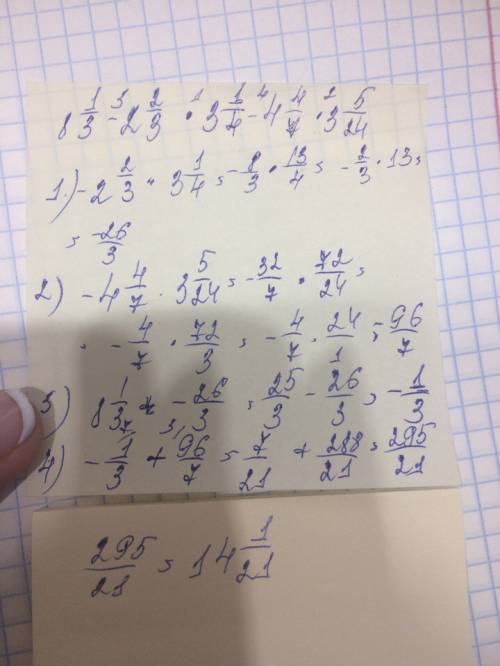 8 1/3 -³ 2 2/3 ·¹ 3 1/4 -⁴ 4 4/7 ·² 3 5/24
1.) -2 2/3 · 3 1/4 = -8/3 · 13/4 = -2/3 · 13 =
= -26/3
2) -4 4/7 · 3 5/24 = -32/7 · 72/24 =
= -4/7 · 72/3 = -4/7 · 24/1 = -96/7
3) 8 1/3 + -26/3 = 25/3 - 26/3 = -1/3
4) -1/3 + 96/7 = 7/21 + 288/21 = 295/21
295/21 = 14 1/21